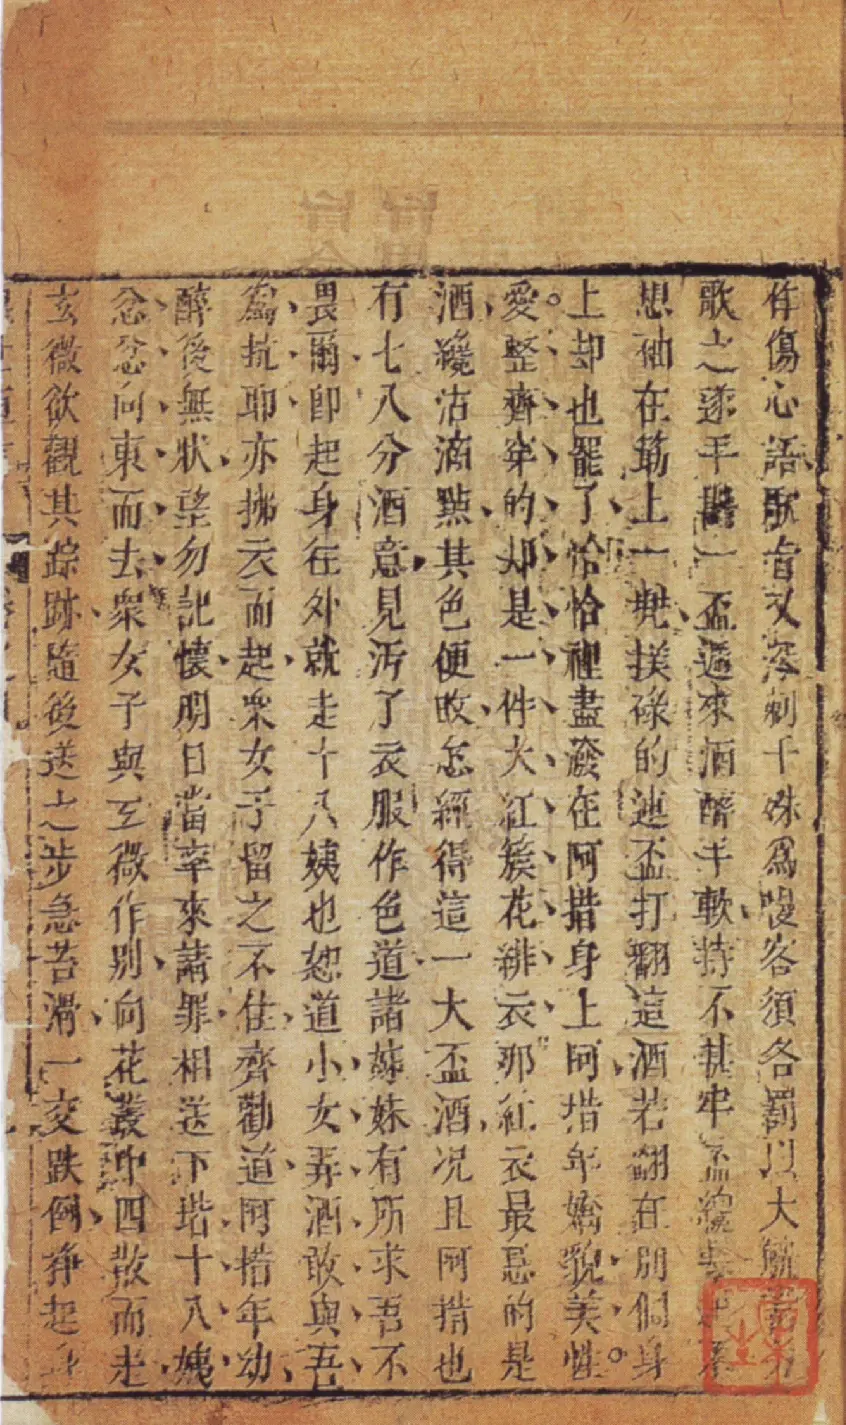 作傷心語歌旨又深刺十姨爲慢客須各罰以大觥當另
歌之遂手斟一盃遞來酒醉手軟持不甚牢盃纔
想袖在筯上一兜撲碌的連盃打翻這酒若翻在別個身
上却也罷了恰恰裡盡潑在阿措身上阿措年嬌貌美性
愛整齊穿的却是一件大紅簇花緋衣那紅衣最忌的是
酒纔沾滴點其色便改怎經得這一大盃酒况且阿措也
有七八分酒意見污了衣服作色道諸姊妹有所求吾不
畏爾即起身往外就走十八姨也怒道小女弄酒敢與吾
爲抗耶亦拂衣而起衆女子留之不住齊勸道阿措年幼
醉後無狀望勿記懷明日當率來請罪相送下堦十八姨
忿忿向東而去衆女子與玄微作別向花叢中四散而走
玄微欲觀其踪跡隨後送之步急苔滑一交跌倒掙起身